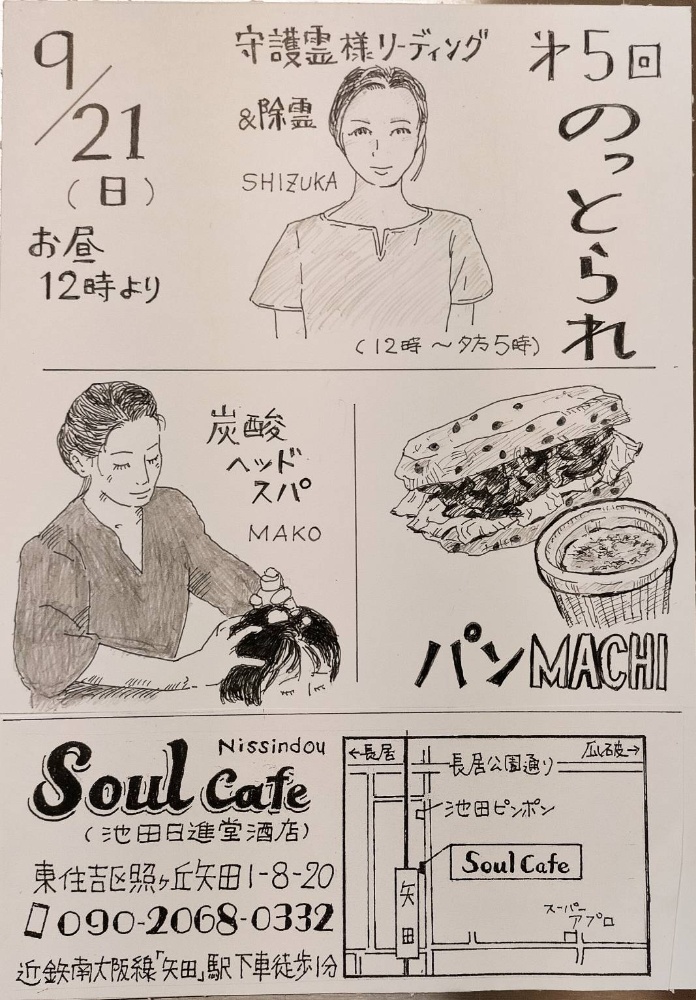 9/21
(日)
お昼
12時より
守護霊様リーディング
&除霊
SHIZUKA
(12時〜夕方5時)
第5回
のっとられ
炭酸
ヘッド
スパ
MAKO
パンMACHI
Nissindou
Soul Cafe
(池田日進堂酒店)
東住吉区照ヶ丘矢田1-8-20
090-2068-0332
近鉄南大阪線「矢田」駅下車徒歩1分
←長居
長居公園通り
瓜破→
池田ピンポン
Soul Cafe
矢田
スーパー
アプロ